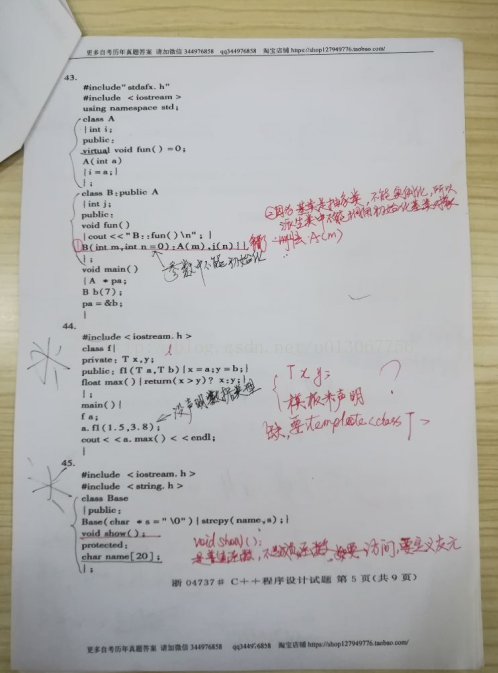 更多自考历年真题答案 请加微信 344976858 qq344976858 淘宝店铺 https://shop127949776.taobao.com/
43.
#include"stdafx.h"
#include <iostream>
using namespace std;
class A
{int i;
public:
virtual void fun()=0;
A(int a)
{i=a;}
};
class B:public A
{int j;
public:
void fun()
{cout<<"B::fun()\n"; }
① B(int m,int n=0):A(m),j(n){}
};
void main()
{A *pa;
B b(7);
pa=&b;
}
②因为基类是抽象类,不能实例化,所以
派生类中不能初始化基类对象
删去:A(m)
参数中不能初始化
44.
#include <iostream.h>
class f{
private: T x,y;
public: f1(T a,T b){x=a;y=b;}
float max(){return(x>y)? x:y;}
};
main()
{f a;
a.f1(1.5,3.8);
cout<<a.max()<<endl;
}
没声明数据类型
T x y;
模板未声明
缺,要template<class T>
?
45.
#include <iostream.h>
#include <string.h>
class Base
{public:
Base(char *s="\0"){strcpy(name,s);}
void show();
protected:
char name[20];
};
void show();
是普通函数,不是成员函数,如要访问,要定义友元
浙 04737# C++程序设计试题 第 5 页(共 9 页)
更多自考历年真题答案 请加微信 344976858 qq344976858 淘宝店铺 https://shop127949776.taobao.com/